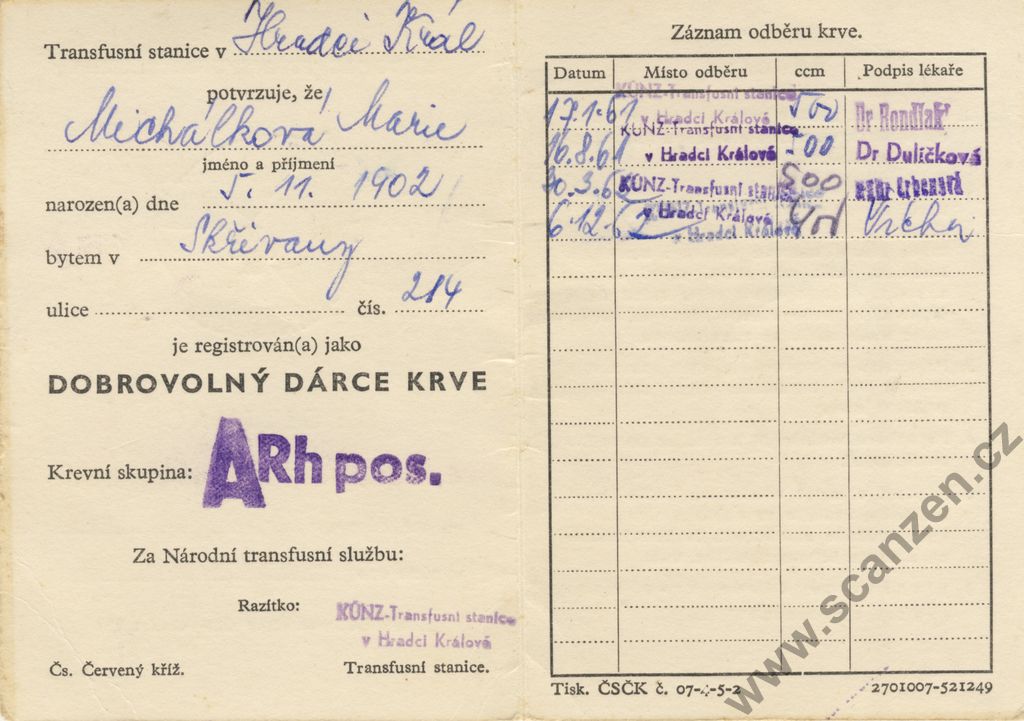 Transfusní stanice v Hradci Král
potvrzuje, že
Michálková Marie
jméno a příjmení
narozen(a) dne 5. 11. 1902
bytem v Skřivany
ulice čís. 214
je registrován(a) jako
DOBROVOLNÝ DÁRCE KRVE
Krevní skupina: A Rh pos.
Za Národní transfusní službu:
Razítko: KÚNZ-Transfusní stanice
v Hradci Králové
Čs. Červený kříž. Transfusní stanice.
Záznam odběru krve.
Datum Místo odběru ccm Podpis lékaře
17.1.61 KÚNZ-Transfusní stanice v Hradci Králové 500 Dr
16.8.61 KÚNZ-Transfusní stanice v Hradci Králové 500 Dr Duličková
30.3.62 KÚNZ-Transfusní stanice v Hradci Králové 500
6.12.62 v Hradci Králové
Tisk. ČSČK č. 07-4-5-2 2701007-521249
www.scanzen.cz